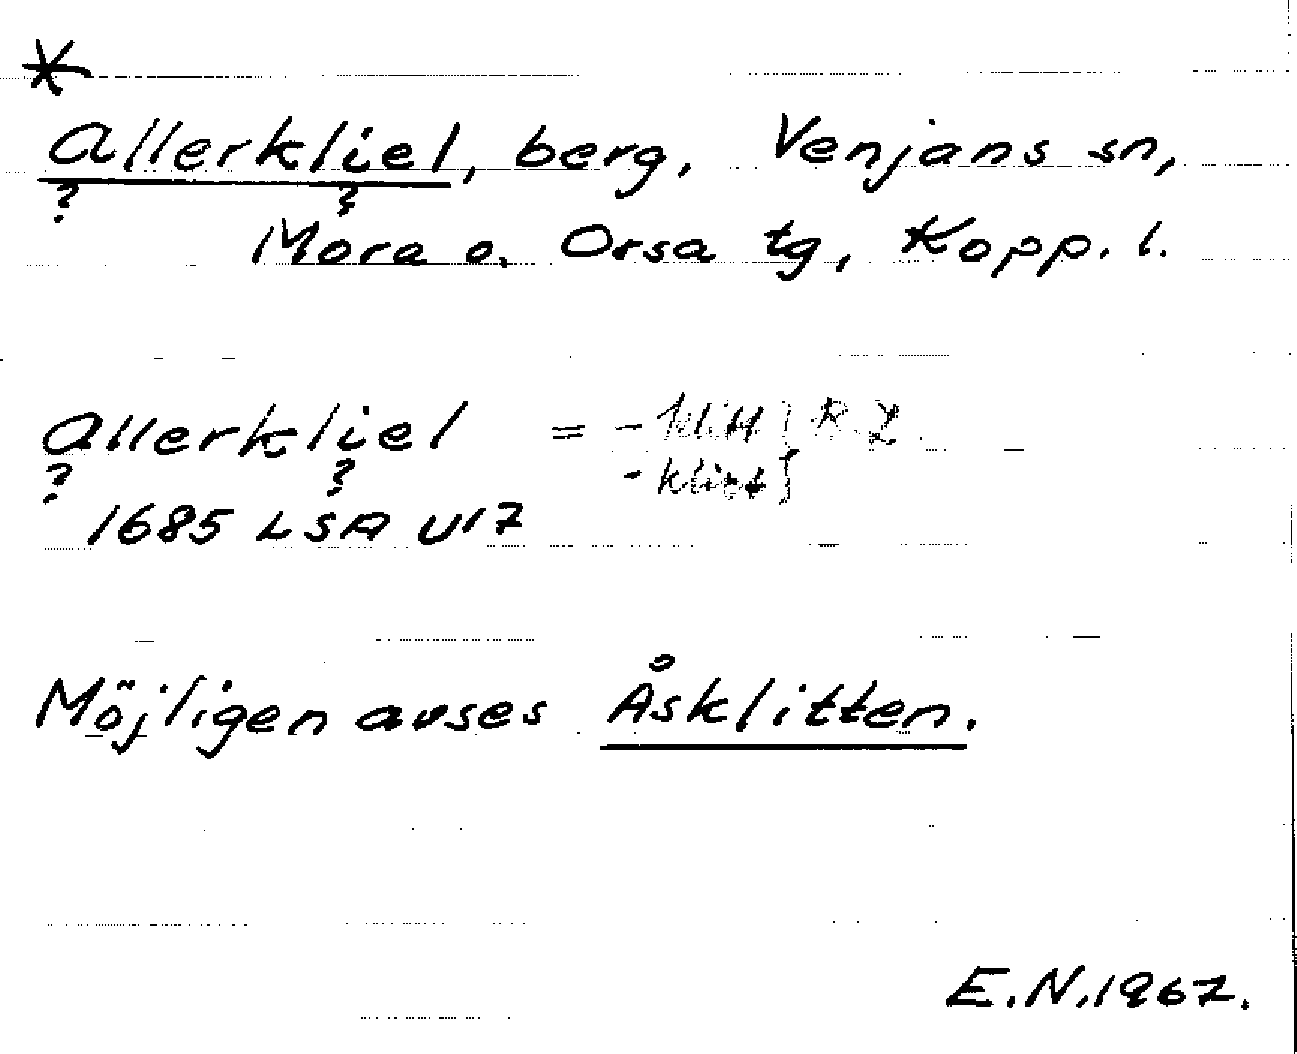 *
Allerkliel, berg, Venjans sn,
? ?
Mora o. Orsa tg, Kopp. l.
Allerkliel = -klitt } R.L.
? ? -klint }
1685 LSA U17
Möjligen avses Åsklitten.
E.N. 1967.